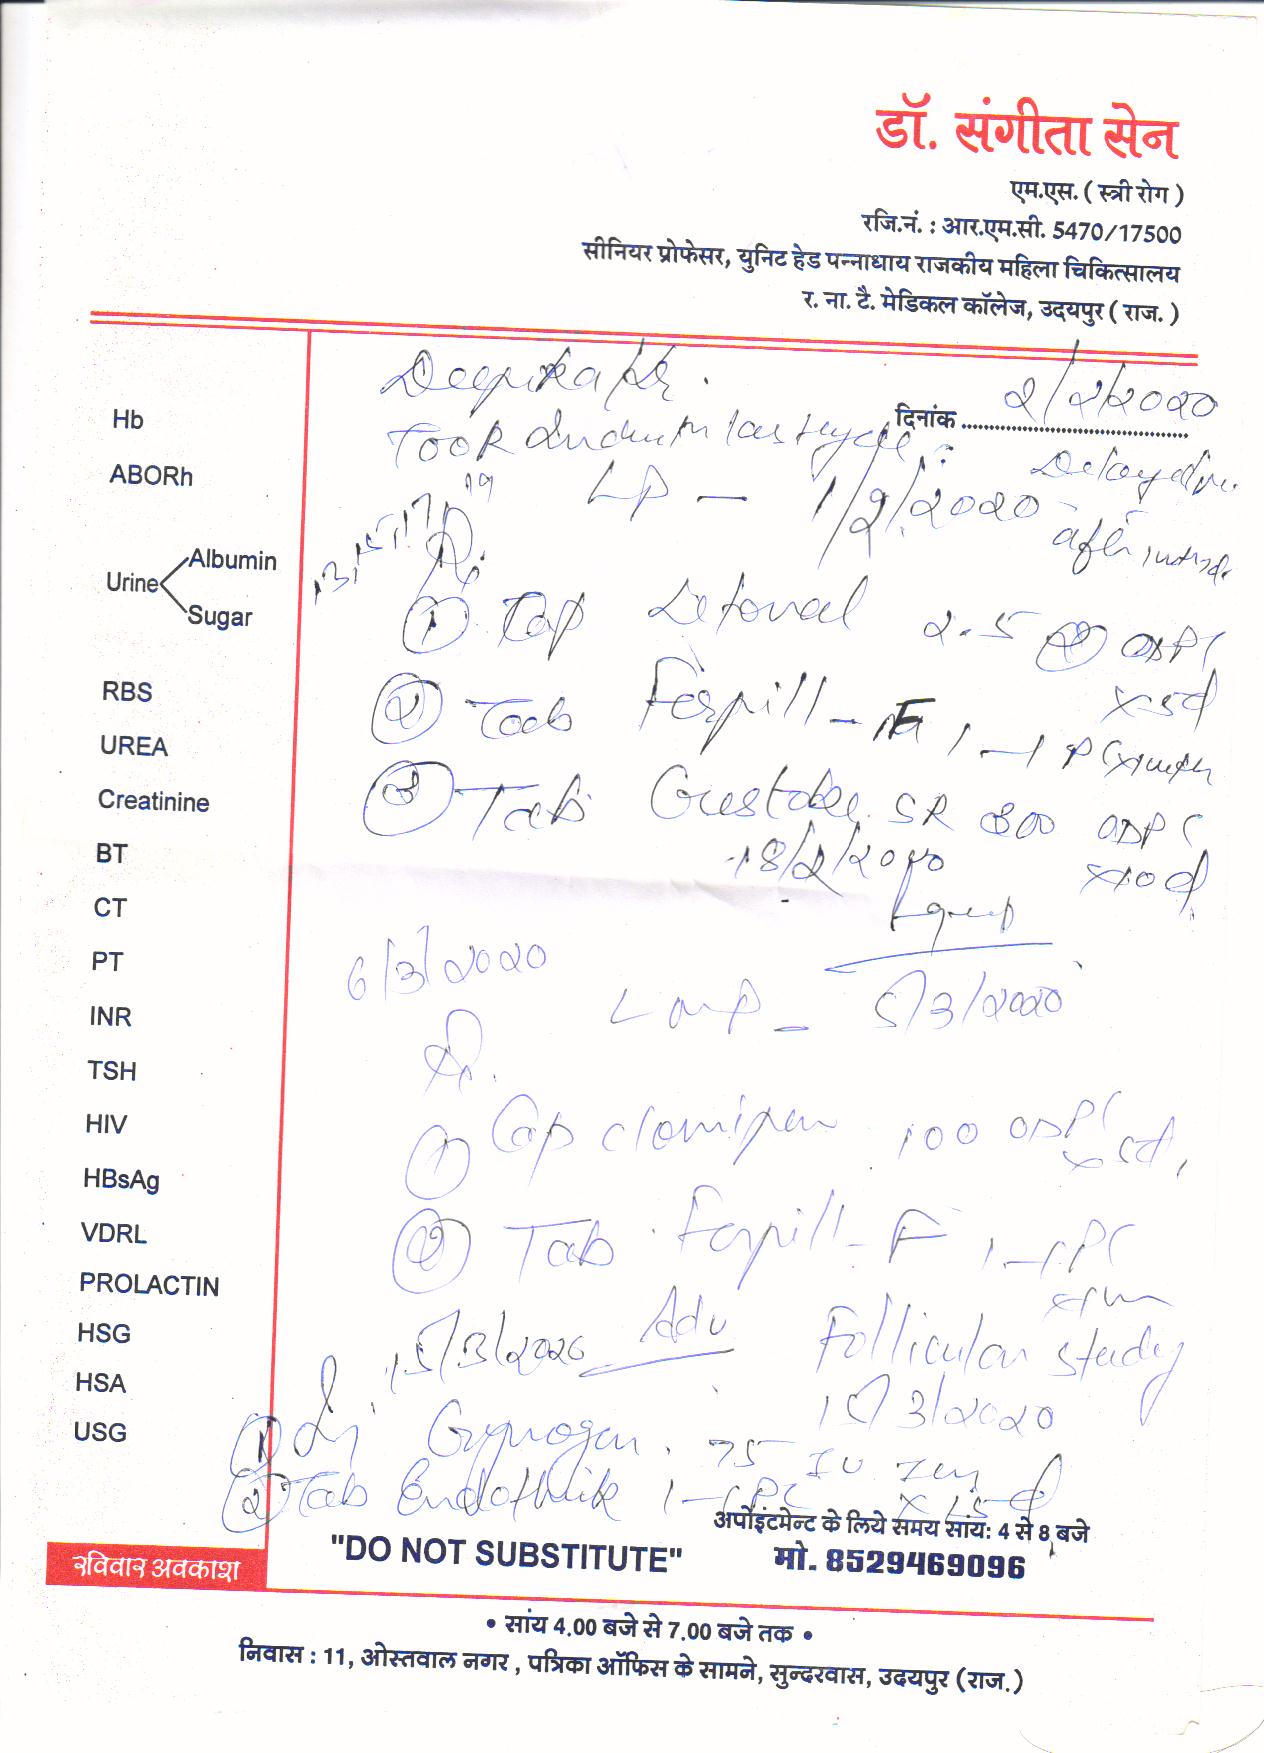 डॉ. संगीता सेन
एम.एस. ( स्त्री रोग )
रजि.नं. : आर.एम.सी. 5470/17500
सीनियर प्रोफेसर, युनिट हेड पन्नाधाय राजकीय महिला चिकित्सालय
र. ना. टै. मेडिकल कॉलेज, उदयपुर ( राज. )
Deepika
दिनांक 2/2/2020
Took last cycle
LP - 1/2/2020
13, 15, 17, 19
1 Cap 2.5 ODPC
x5d
2 Tab Ferpill-F 1-1 PC
3 Tab Gestober SR 300 ODPC
18/2/2020 x10d
6/3/2020
LMP - 5/3/2020
1 Cap 100 ODPC
x5d
2 Tab Ferpill-F 1-1 PC
15/3/2020 Adv Follicular study
15/3/2020
1 Inj Gynogen 75 IU
2 Tab Endothik 1-1 PC x 15d
Hb
ABORh
Urine Albumin
Sugar
RBS
UREA
Creatinine
BT
CT
PT
INR
TSH
HIV
HBsAg
VDRL
PROLACTIN
HSG
HSA
USG
रविवार अवकाश
अपोइंटमेन्ट के लिये समय सांय: 4 से 8 बजे
"DO NOT SUBSTITUTE" मो. 8529469096
• सांय 4.00 बजे से 7.00 बजे तक •
निवास : 11, ओस्तवाल नगर , पत्रिका ऑफिस के सामने, सुन्दरवास, उदयपुर (राज.)